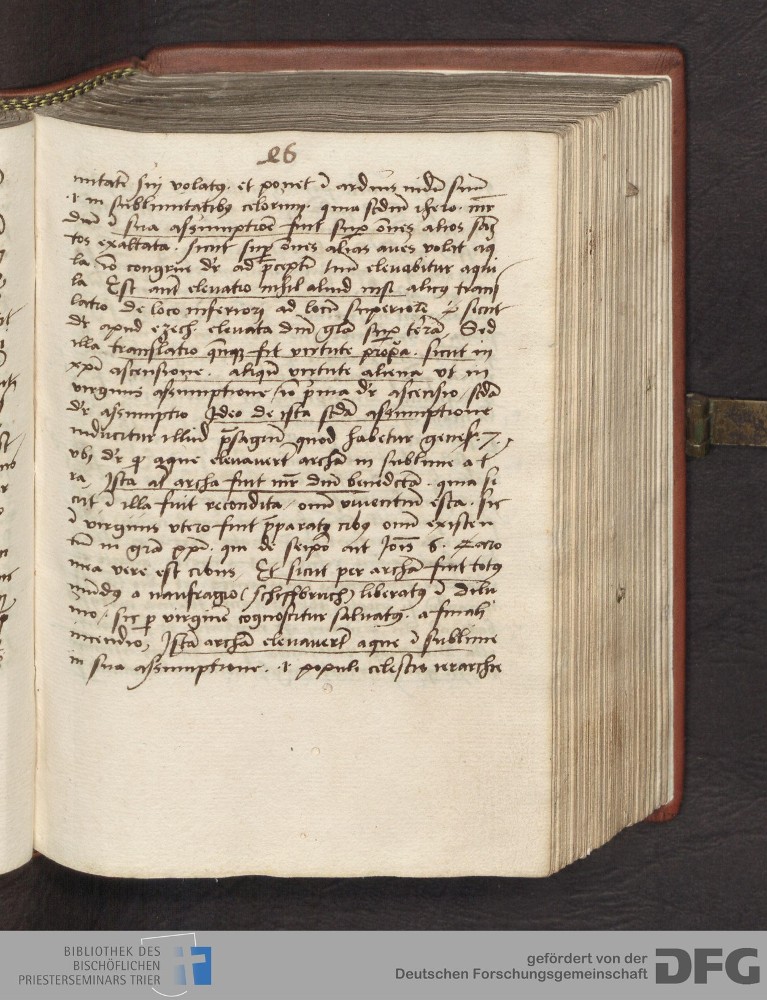 26
mitate sui volatus. et ponet ī arduis nidū suū
.i. in sublimitatibus celorum. quia scdm Ihero. mr
dni ī sua assumptione fuit super oēs alios san
ctos exaltata. sicut super oēs alias aves volat aq
la iō congrue dr ad preceptū tuū elevabitur aqui
la Est aut elevatio nihil aliud nisi alicuius trans
latio de loco inferiori ad locū superiorē sicut
dr apud ezech. elevata dni grā super terrā. Sed
illa translatio qnque fit virtute propria. sicut in
xpi ascensione. aliqn virtute aliena ut in
virginis assumptione / iō prima dr ascensio / scda
dr assumptio Ideo de ista scda assumptione
inducitur illud presagiū quod habetur genes. 7.
ubi dr qd aque elevaverūt archā in sublime a t
ra, Ista at archa fuit mr dni benedcta. quia si
cut ī illa fuit recondita / oīm viventiū esca. sic
ī virginis utero fuit preparatus cibus oīm existen
tiū in grā xpi. qui de seipo ait Joīs 6. Caro
mea vere est cibus, Et sicut per archā fuit totus
mūdus a naufragio (schiffbruch) liberatus ī dilu
vio / sic p virginē cognoscitur salvatus. a finali
incendio, Istā archā elevaverūt aque ī sublime
in sua assumptione. .i. populi celestis ierarchie
BIBLIOTHEK DES
BISCHÖFLICHEN
PRIESTERSEMINARS TRIER
gefördert von der
Deutschen Forschungsgemeinschaft
DFG